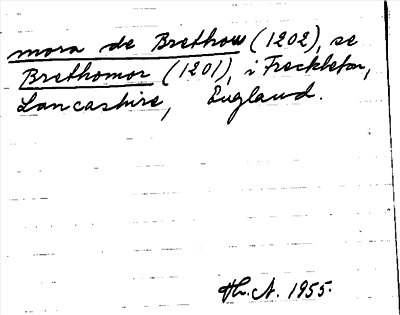 mora de Brethow (1202), se
Brethomor (1201), i Freckleton,
Lancashire, England.
Th. N. 1955.